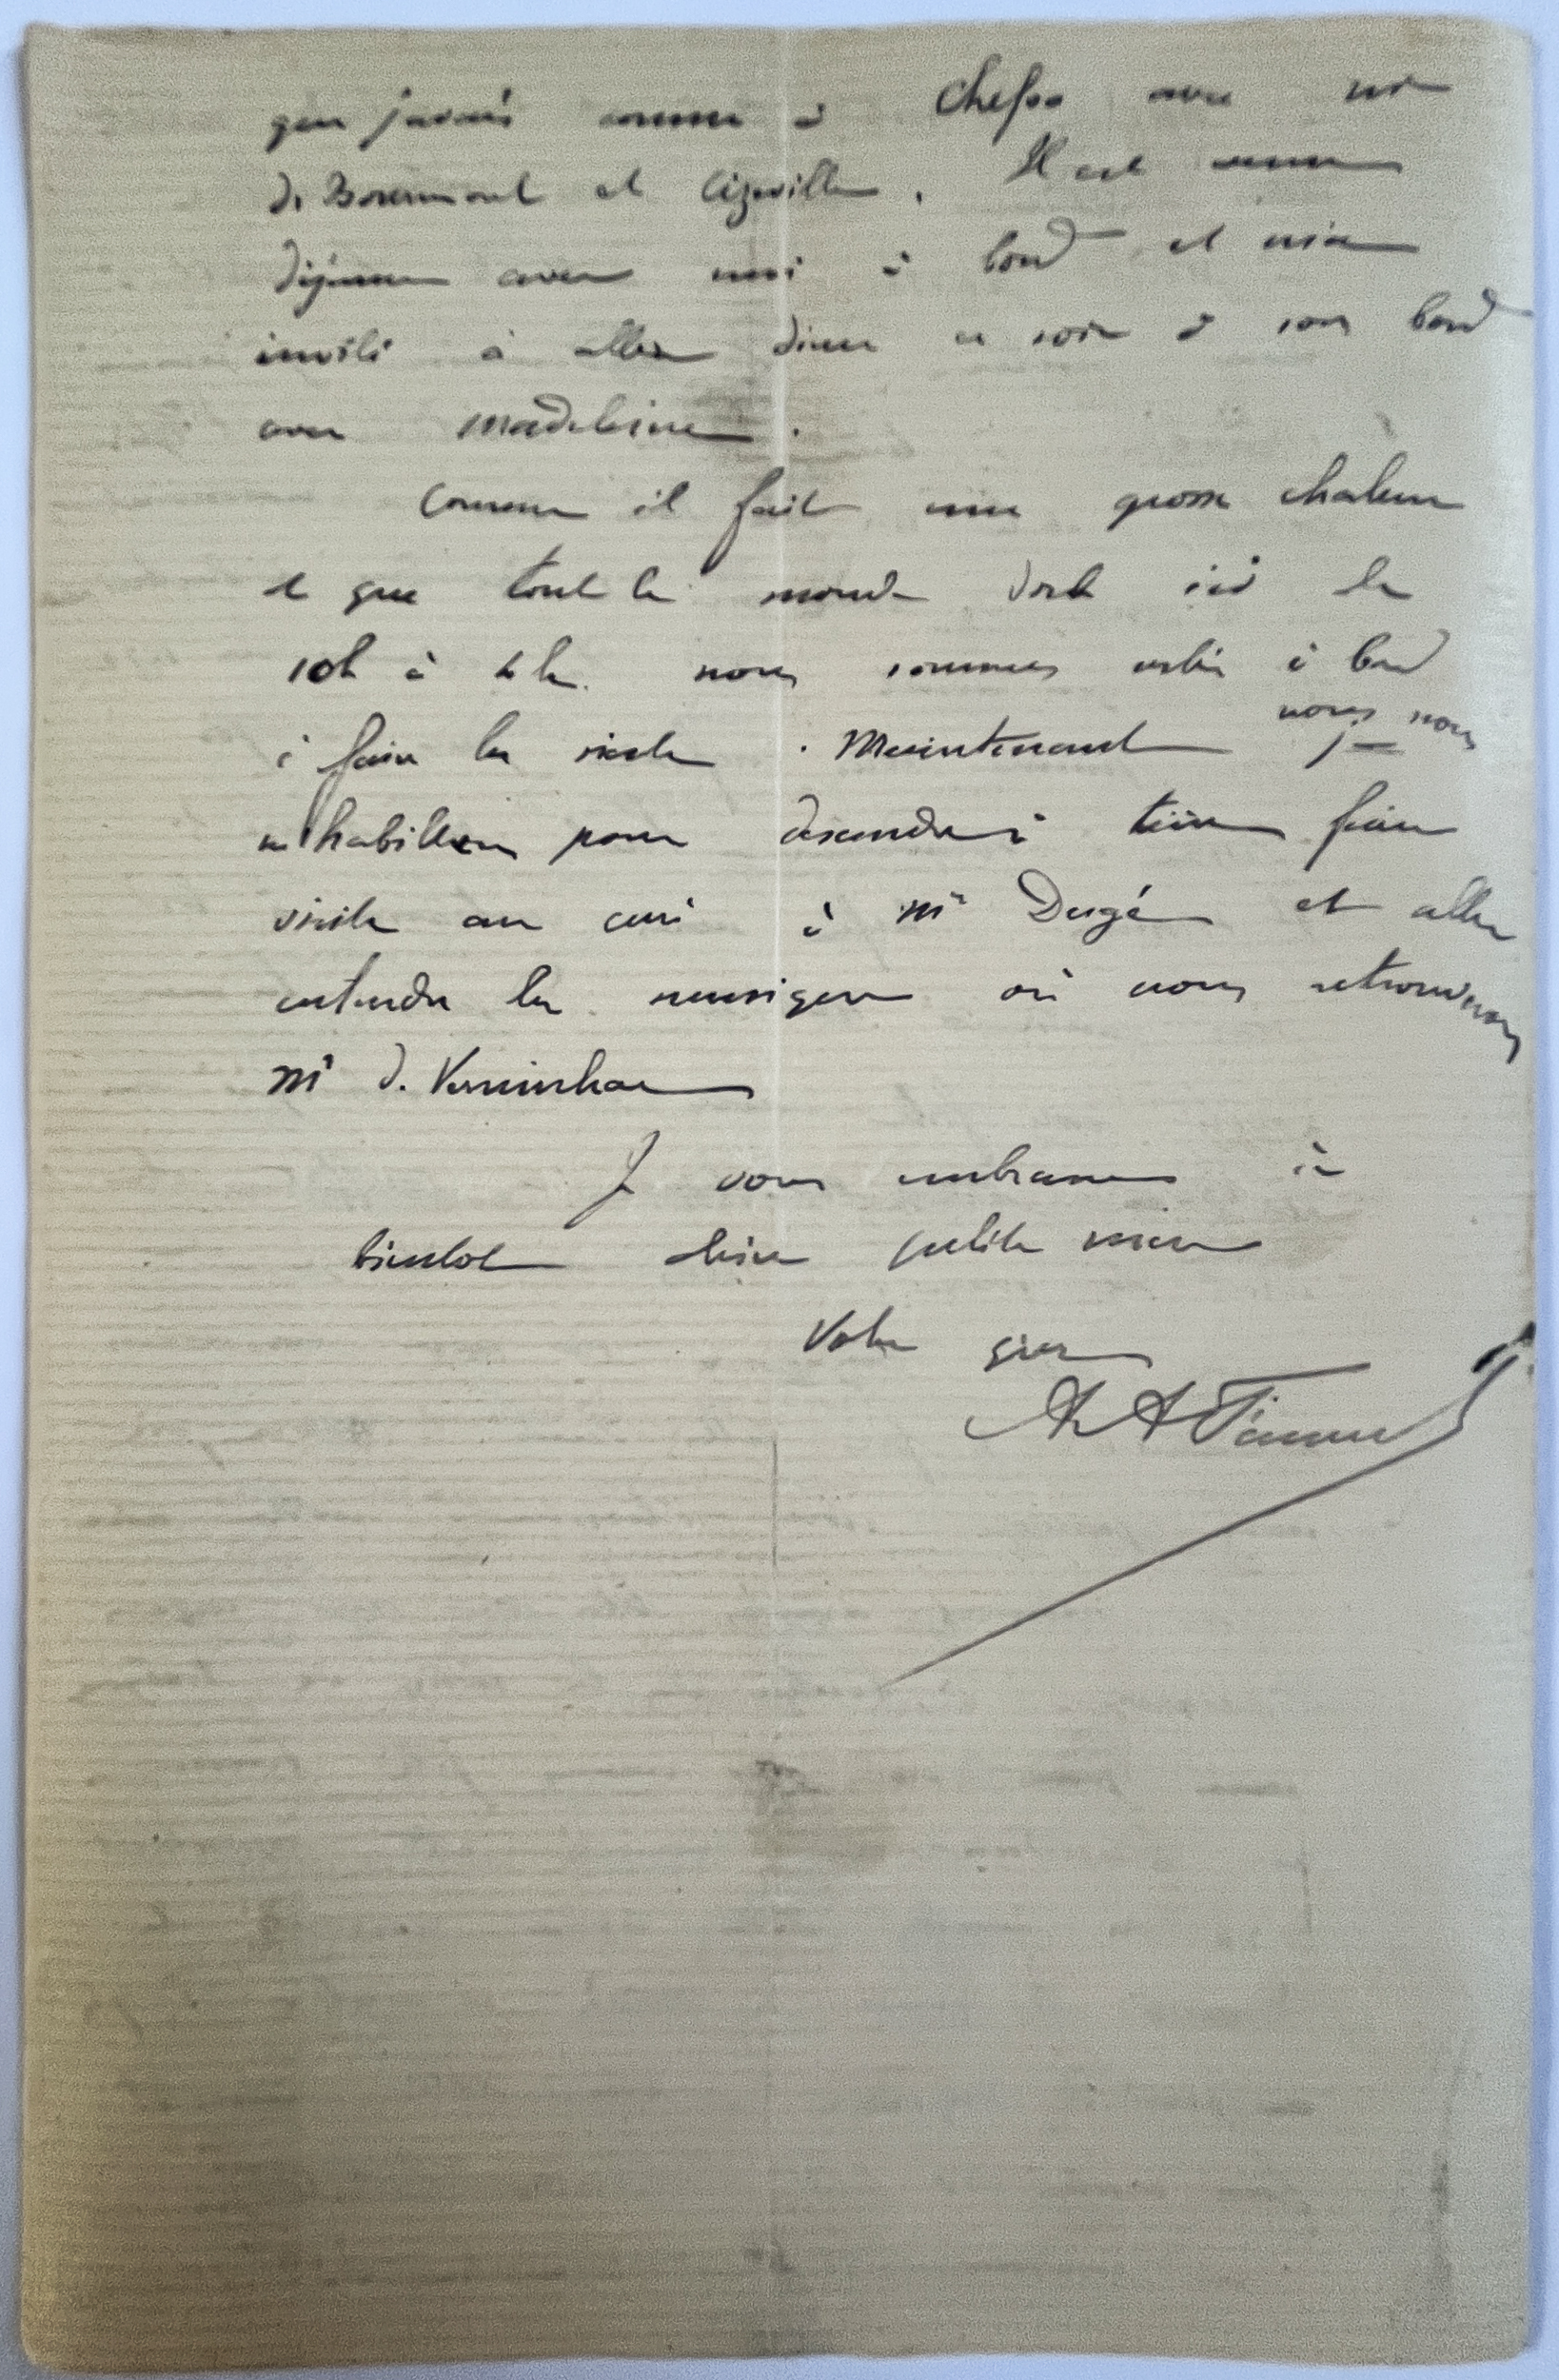 que j'avais connu à Chefoo avec mr
de Boremont et Cizeville. Il est venu
déjeuner avec moi à bord et m'a
invité à aller diner ce soir à son bord
avec Madeleine.
Comme il fait une grosse chaleur
et que tout le monde dort ici de
10h à 4h. nous sommes restés à bord
à faire la sieste. Maintenant nous nous
habillons pour descendre à terre faire
visite au curé à Mr Dugé et aller
entendre la musique où nous retrouverons
Mr de Verninhac
Je vous embrasse à
bientot chère petite mère
Votre gros